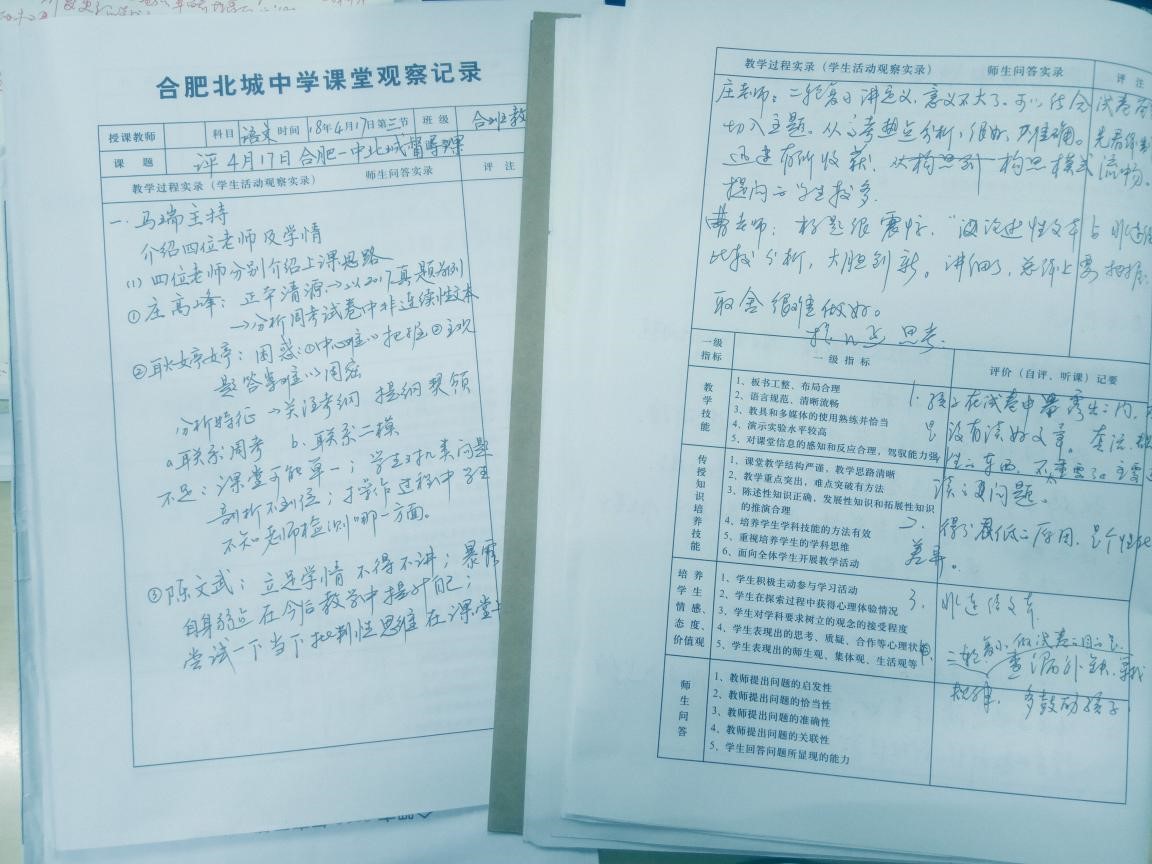 合肥北城中学课堂观察记录
授课教师 科目 语文 时间 18年4月17日第三节 班级 合班教
课题 评4月17日合肥一中北城督导课
教学过程实录（学生活动观察实录） 师生问答实录 评注
一.马瑞主持
介绍四位老师及学情
(1)四位老师分别介绍上课思路
①庄高峰：正本清源→以2017真题为例
→分析周考试卷中非连续性文本
②耿婷婷：困惑：①中心难以把握②主观
题答案难以周密
分析特征→关注考纲 提纲挈领
a.联系周考 b.联系二模
不足：课堂可能单一；学生对此类问题
剖析不到位；操作过程中学生
不知老师检测哪一方面。
③陈文武：立足学情 不得不讲；暴露
自身弱点在今后教学中提升自己；
尝试一下当下批判性思维在课堂上
教学过程实录（学生活动观察实录） 师生问答实录 评注
庄老师：二轮复习讲定义，意义不大了，可以结合试卷
切入主题。从高考热点分析，很好，很准确。
迅速有所收获！从构思到构思模式
提问学生较多.
曹老师：标题很震惊，“议论述性文本与非连续
比较分析，大胆创新。讲细了，总体上要把握，
取舍很难做好。
思考.
一级指标 一级指标 评价（自评、听课）记要
教学技能
1、板书工整、布局合理
2、语言规范、清晰流畅
3、教具和多媒体的使用熟练并恰当
4、演示实验水平较高
5、对课堂信息的感知和反应合理，驾驭能力强
传授知识培养技能
1、课堂教学结构严谨，教学思路清晰
2、教学重点突出，难点突破有方法
3、陈述性知识正确，发展性知识和拓展性知识
的推演合理
4、培养学生学科技能的方法有效
5、重视培养学生的学科思维
6、面向全体学生开展教学活动
培养学生情感、态度、价值观
1、学生积极主动参与学习活动
2、学生在探索过程中获得心理体验情况
3、学生对学科要求树立的观念的接受程度
4、学生表现出的思考、质疑、合作等心理状
5、学生表现出的师生观、集体观、生活观等
师生问答
1、教师提出问题的启发性
2、教师提出问题的恰当性
3、教师提出问题的准确性
4、教师提出问题的关联性
5、学生回答问题所显现的能力
1.孩子在试卷中
没有读好文章。
读了要问题。
2.得分最低的原因，是个性化
差异。
3.非连续文本
查漏补缺，寻找
规律，多鼓励孩子.